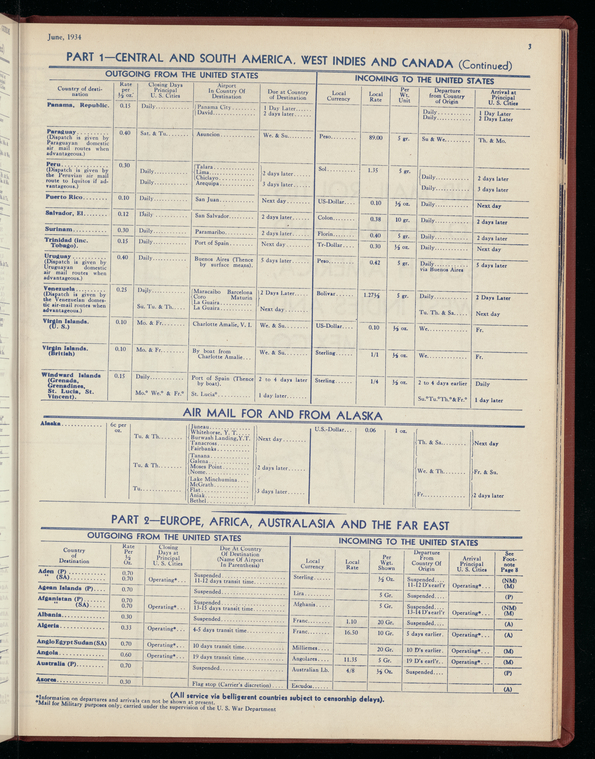 June, 1934
3
PART 1—CENTRAL AND SOUTH AMERICA, WEST INDIES AND CANADA (Continued)
OUTGOING FROM THE UNITED STATES
INCOMING TO THE UNITED STATES
Country of desti-nation | Rate per ½ oz. | Closing Days Principal U. S. Cities | Airport In Country Of Destination | Due at Country of Destination | Local Currency | Local Rate | Per Wt. Unit | Departure from Country of Origin | Arrival at Principal U. S. Cities
Panama, Republic. 0.15 Daily Panama City 1 Day Later Daily 1 Day Later
David 2 days later Daily 2 Days Later
Paraguay 0.40 Sat. & Tu. Asuncion We. & Su. Peso 89.00 5 gr. Su & We. Th. & Mo.
(Dispatch is given by
Paraguayan domestic
air mail routes when
advantageous.)
Peru 0.30 Talara Sol 1.35 5 gr.
(Dispatch is given by Daily Lima 2 days later Daily 2 days later
the Peruvian air mail Chiclayo
route to Iquitos if ad- Daily Arequipa 3 days later Daily 3 days later
vantageous.)
Puerto Rico 0.10 Daily San Juan Next day US-Dollar 0.10 ½ oz. Daily Next day
Salvador, El 0.12 Daily San Salvador 2 days later Colon 0.38 10 gr. Daily 2 days later
Surinam 0.30 Daily Paramaribo 2 days later Florin 0.40 5 gr. Daily 2 days later
Trinidad (inc. Tobago). 0.15 Daily Port of Spain Next day Tr-Dollar 0.30 ½ oz. Daily Next day
Uruguay 0.40 Daily Buenos Aires (Thence 5 days later Peso 0.42 5 gr. Daily 5 days later
(Dispatch is given by by surface means). via Buenos Aires
Uruguayan domestic
air mail routes when
advantageous.)
Venezuela 0.25 Daily Maracaibo Barcelona 2 Days Later Bolivar 5 gr. Daily 2 Days Later
(Dispatch is given by Coro Maturin
the Venezuelan domes- La Guaira
tic air-mail routes when Su. Tu. & Th. La Guaira Next day Tu. Th. & Sa. Next day
advantageous.)
Virgin Islands. (U. S.) 0.10 Mo. & Fr. Charlotte Amalie, V. I. We. & Su. US-Dollar 0.10 ½ oz. We. Fr.
Virgin Islands. (British) 0.10 Mo. & Fr. By boat from Charlotte Amalie We. & Su. Sterling 1/1 ½ oz. We. Fr.
Windward Islands 0.15 Daily Port of Spain (Thence 2 to 4 days later Sterling 1/4 ½ oz. 2 to 4 days earlier Daily
(Grenada, by boat).
Grenadines,
St. Lucia, St. Mo.* We.* & Fr.* St. Lucia* 1 day later Su.*Tu.*Th.*&Fr.* 1 day later
Vincent).
AIR MAIL FOR AND FROM ALASKA
Alaska 6c per oz. U.S.-Dollar 0.06 1 oz.
Juneau
Whitehorse, Y. T.
Tu. & Th. Burwash Landing, Y.T. Next day Th. & Sa. Next day
Tanacross
Fairbanks
Tanana
Galena
Tu. & Th. Moses Point 2 days later We. & Th. Fr. & Su.
Nome
Lake Minchumina
McGrath
Tu. Flat 3 days later Fr. 2 days later
Aniak
Bethel
PART 2—EUROPE, AFRICA, AUSTRALASIA AND THE FAR EAST
OUTGOING FROM THE UNITED STATES
INCOMING TO THE UNITED STATES
Country of Destination | Rate Per ½ Oz. | Closing Days at Principal U. S. Cities | Due At Country Of Destination (Name Of Airport In Parenthesis) | Local Currency | Local Rate | Per Wgt. Shown | Departure From Country Of Origin | Arrival Principal U. S. Cities | See Foot-note Page 8
Aden (P) 0.70 Suspended Sterling ½ Oz. Suspended (NM)
" (SA) 0.70 Operating* 11-12 days transit time 11-12 D'searl'r Operating* (M)
Agean Islands (P) 0.70 Suspended Lira 5 Gr. (P)
Afganistan (P) 0.70 Suspended Afghania 5 Gr. Suspended (NM)
(SA) 0.70 Operating* 13-15 days transit time 13-14 D'searl'r Operating* (M)
Albania 0.30 Suspended Franc 1.10 20 Gr. Suspended (A)
Algeria 0.33 Operating* 4-5 days transit time Franc 16.30 10 Gr. 5 days earlier Operating* (A)
Anglo Egypt Sudan (SA) 0.70 Operating* 10 days transit time Milliemes 20 Gr. 10 D's earlier Operating* (M)
Angola 0.60 Operating* 19 days transit time Angolares 11.35 5 Gr. 19 D's earl'r Operating* (M)
Australia (P) 0.70 Suspended Australian Lb. 4/8 ½ Oz. Suspended (P)
Azores 0.30 Flag stop (Carrier's discretion) Escudos (A)
(All service via belligerent countries subject to censorship delays).
*Information on departures and arrivals can not be shown at present.
*Mail for Military purposes only; carried under the supervision of the U. S. War Department